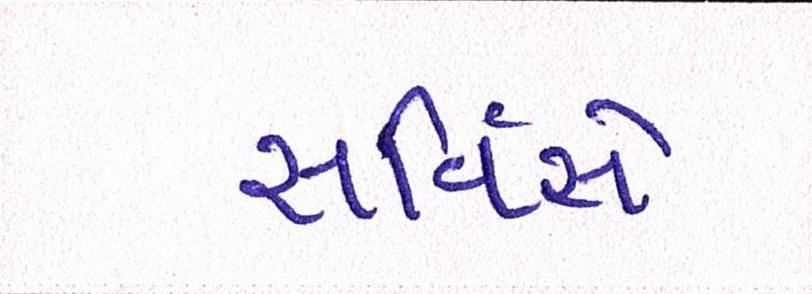 સર્વિસે